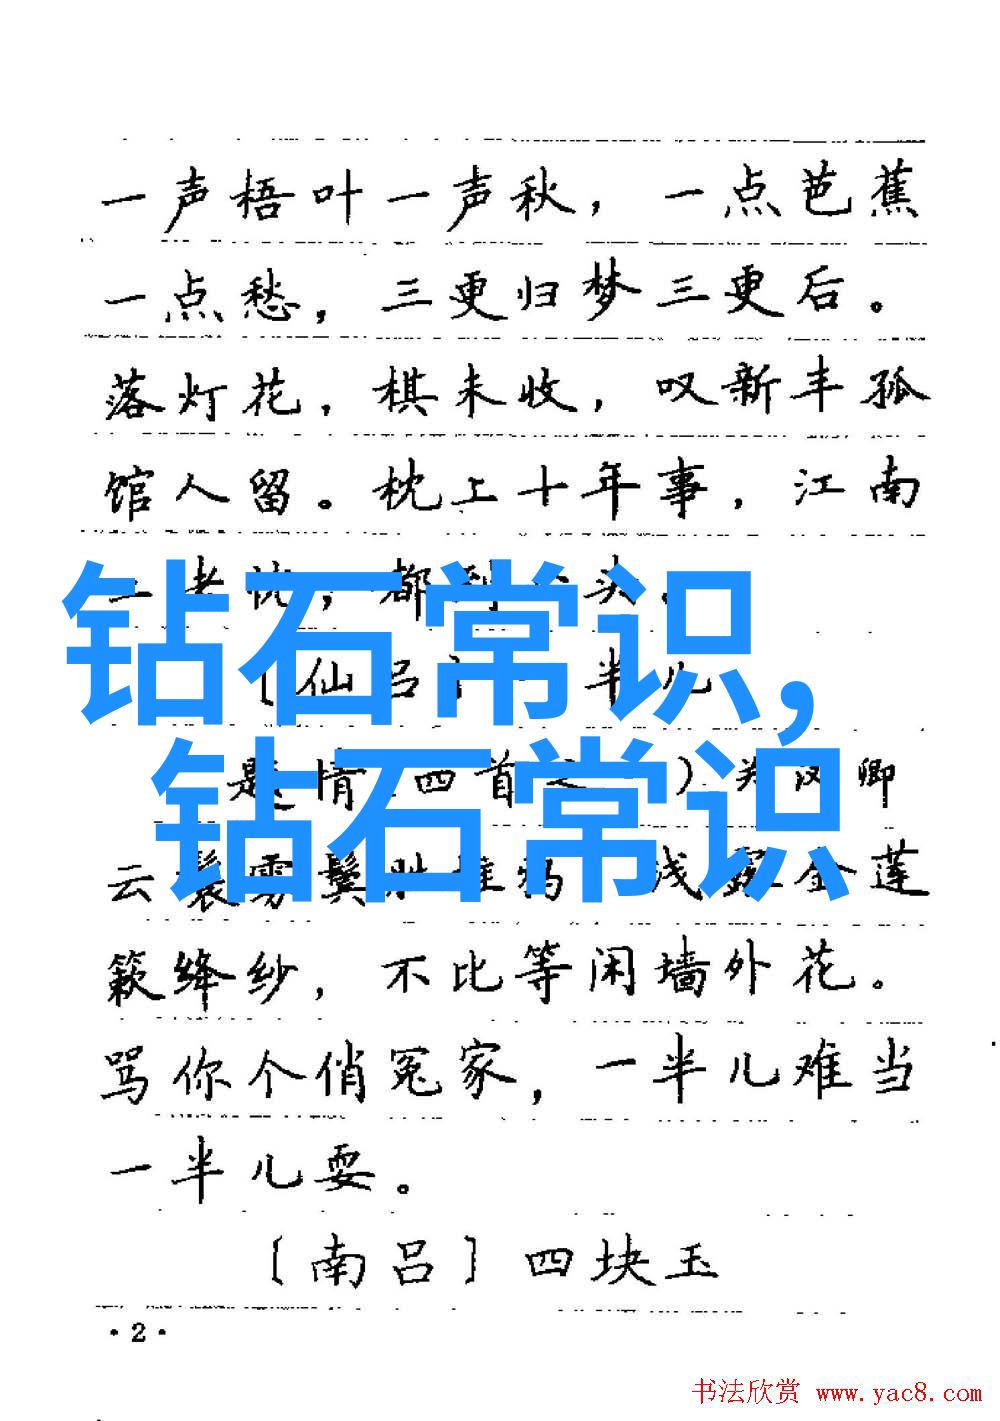 一声梧叶一声秋，一点芭蕉
一点愁，三更归梦三更后。
落灯花，棋未收，叹新丰孤
馆人留。枕上十年事，江南
二老忧，都到心头。
钻石常识,
〔仙吕〕一半儿
题情（四首之）关汉卿
钻石常识
云鬟雾鬓胜堆鸦，浅露金莲
簌绛纱，不比等闲墙外花。
骂你个俏冤家，一半儿难当
一半儿耍。
〔南吕〕四块玉
·2·
书法欣赏 www.yac8.com